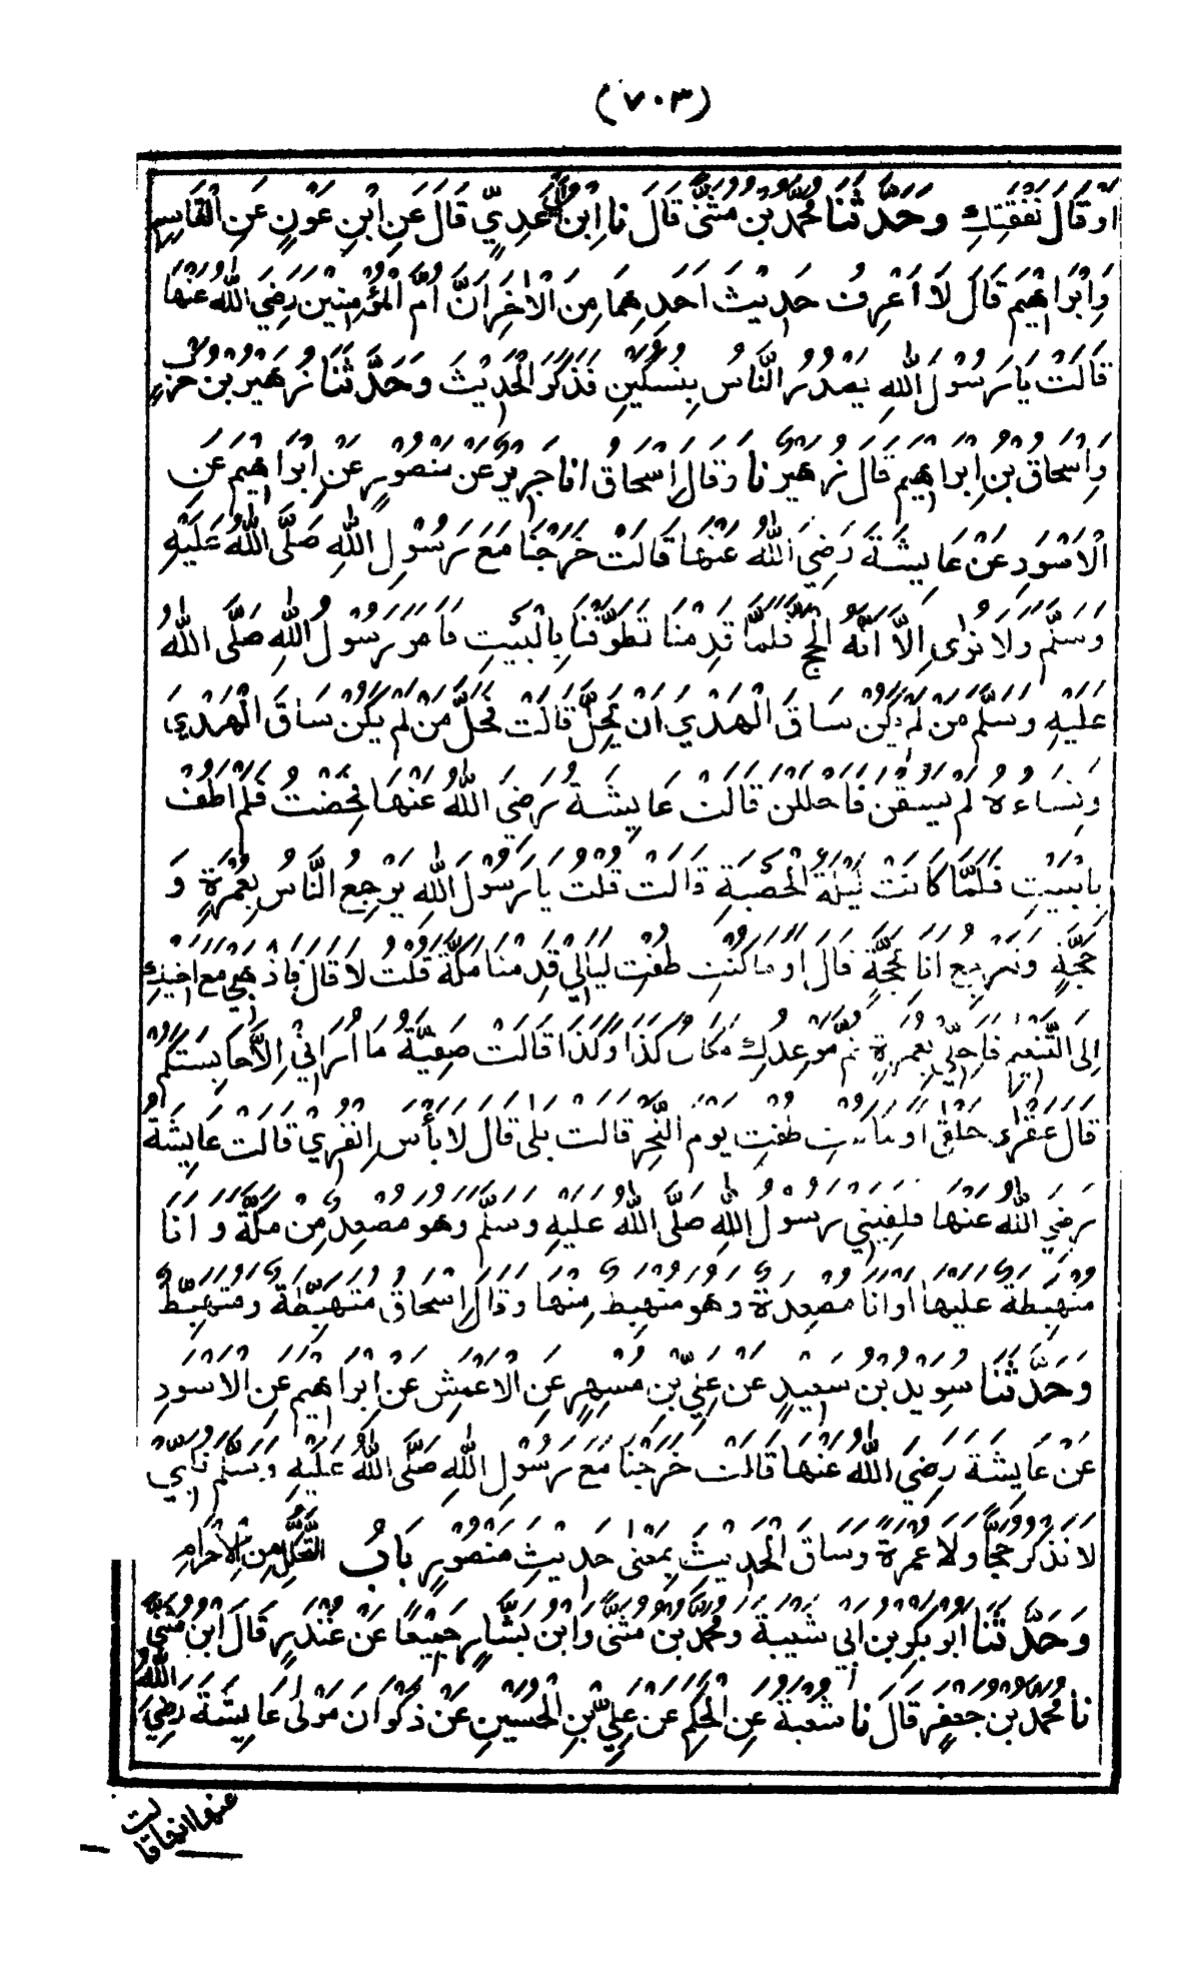 (٧٠٣)
اَوْ قَالَ نَفَقَتِكِ وَحَدَّثَنَا مُحَمَّدُ بْنُ مُثَنَّى قَالَ نَا ابْنُ اَبِي عَدِيٍّ قَالَ عَنِ ابْنِ عَوْنٍ عَنِ الْقَاسِمِ
وَاِبْرَاهِيْمَ قَالَ لَا اَعْرِفُ حَدِيْثَ اَحَدِهِمَا مِنَ الْاٰخَرِ اَنَّ اُمَّ الْمُؤْمِنِيْنَ رَضِيَ اللهُ عَنْهَا
قَالَتْ يَا رَسُوْلَ اللهِ يَصْدُرُ النَّاسُ بِنُسُكَيْنِ فَذَكَرَ الْحَدِيْثَ وَحَدَّثَنَا زُهَيْرُ بْنُ حَرْبٍ
وَاِسْحَاقُ بْنُ اِبْرَاهِيْمَ قَالَ زُهَيْرٌ نَا وَقَالَ اِسْحَاقُ اَنَا جَرِيْرٌ عَنْ مَنْصُوْرٍ عَنْ اِبْرَاهِيْمَ عَنِ
الْاَسْوَدِ عَنْ عَايِشَةَ رَضِيَ اللهُ عَنْهَا قَالَتْ خَرَجْنَا مَعَ رَسُوْلِ اللهِ صَلَّى اللهُ عَلَيْهِ
وَسَلَّمَ وَلَا نُرٰى اِلَّا اَنَّهُ الْحَجُّ فَلَمَّا قَدِمْنَا تَطَوَّفْنَا بِالْبَيْتِ فَاَمَرَ رَسُوْلُ اللهِ صَلَّى اللهُ
عَلَيْهِ وَسَلَّمَ مَنْ لَمْ يَكُنْ سَاقَ الْهَدْيَ اَنْ يَحِلَّ قَالَتْ فَحَلَّ مَنْ لَمْ يَكُنْ سَاقَ الْهَدْيَ
وَنِسَاءُهُ لَمْ يَسُقْنَ فَاَحْلَلْنَ قَالَتْ عَايِشَةُ رَضِيَ اللهُ عَنْهَا فَحِضْتُ فَلَمْ اَطُفْ
بِالْبَيْتِ فَلَمَّا كَانَتْ لَيْلَةُ الْحَصْبَةِ قَالَتْ قُلْتُ يَا رَسُوْلَ اللهِ يَرْجِعُ النَّاسُ بِعُمْرَةٍ وَ
حَجَّةٍ وَنَرْجِعُ اَنَا بِحَجَّةٍ قَالَ اَوَمَا كُنْتِ طُفْتِ لَيَالِيَ قَدِمْنَا مَكَّةَ قُلْتُ لَا قَالَ فَاذْهَبِيْ مَعَ اَخِيْكِ
اِلَى التَّنْعِيْمِ فَاَهِلِّيْ بِعُمْرَةٍ ثُمَّ مَوْعِدُكِ مَكَانُ كَذَا وَكَذَا قَالَتْ صَفِيَّةُ مَا اُرَانِيْ اِلَّا حَابِسَتَكُمْ
قَالَ عَقْرٰى حَلْقٰى اَوَمَا كُنْتِ طُفْتِ يَوْمَ النَّحْرِ قَالَتْ بَلٰى قَالَ لَا بَأْسَ اِنْفِرِيْ قَالَتْ عَايِشَةُ
رَضِيَ اللهُ عَنْهَا فَلَقِيَنِيْ رَسُوْلُ اللهِ صَلَّى اللهُ عَلَيْهِ وَسَلَّمَ وَهُوَ مُصْعِدٌ مِنْ مَكَّةَ وَ اَنَا
مُنْهَبِطَةٌ عَلَيْهَا اَوْ اَنَا مُصْعِدَةٌ وَهُوَ مُنْهَبِطٌ مِنْهَا وَقَالَ اِسْحَاقُ مُتَهَبِّطَةٌ وَمُتَهَبِّطٌ
وَحَدَّثَنَا سُوَيْدُ بْنُ سَعِيْدٍ عَنْ عَلِيِّ بْنِ مُسْهِرٍ عَنِ الْاَعْمَشِ عَنْ اِبْرَاهِيْمَ عَنِ الْاَسْوَدِ
عَنْ عَايِشَةَ رَضِيَ اللهُ عَنْهَا قَالَتْ خَرَجْنَا مَعَ رَسُوْلِ اللهِ صَلَّى اللهُ عَلَيْهِ وَسَلَّمَ نُلَبِّيْ
لَا نَذْكُرُ حَجًّا وَلَا عُمْرَةً وَسَاقَ الْحَدِيْثَ بِمَعْنٰى حَدِيْثِ مَنْصُوْرٍ بَابُ التَّحَلُّلِ مِنَ الْاِحْرَامِ
وَحَدَّثَنَا اَبُوْ بَكْرِ بْنُ اَبِيْ شَيْبَةَ وَمُحَمَّدُ بْنُ مُثَنَّى وَابْنُ بَشَّارٍ جَمِيْعًا عَنْ غُنْدَرٍ قَالَ ابْنُ مُثَنَّى
نَا مُحَمَّدُ بْنُ جَعْفَرٍ قَالَ نَا شُعْبَةُ عَنِ الْحَكَمِ عَنْ عَلِيِّ بْنِ الْحُسَيْنِ عَنْ ذَكْوَانَ مَوْلٰى عَايِشَةَ رَضِيَ اللهُ
عنها انها قالت